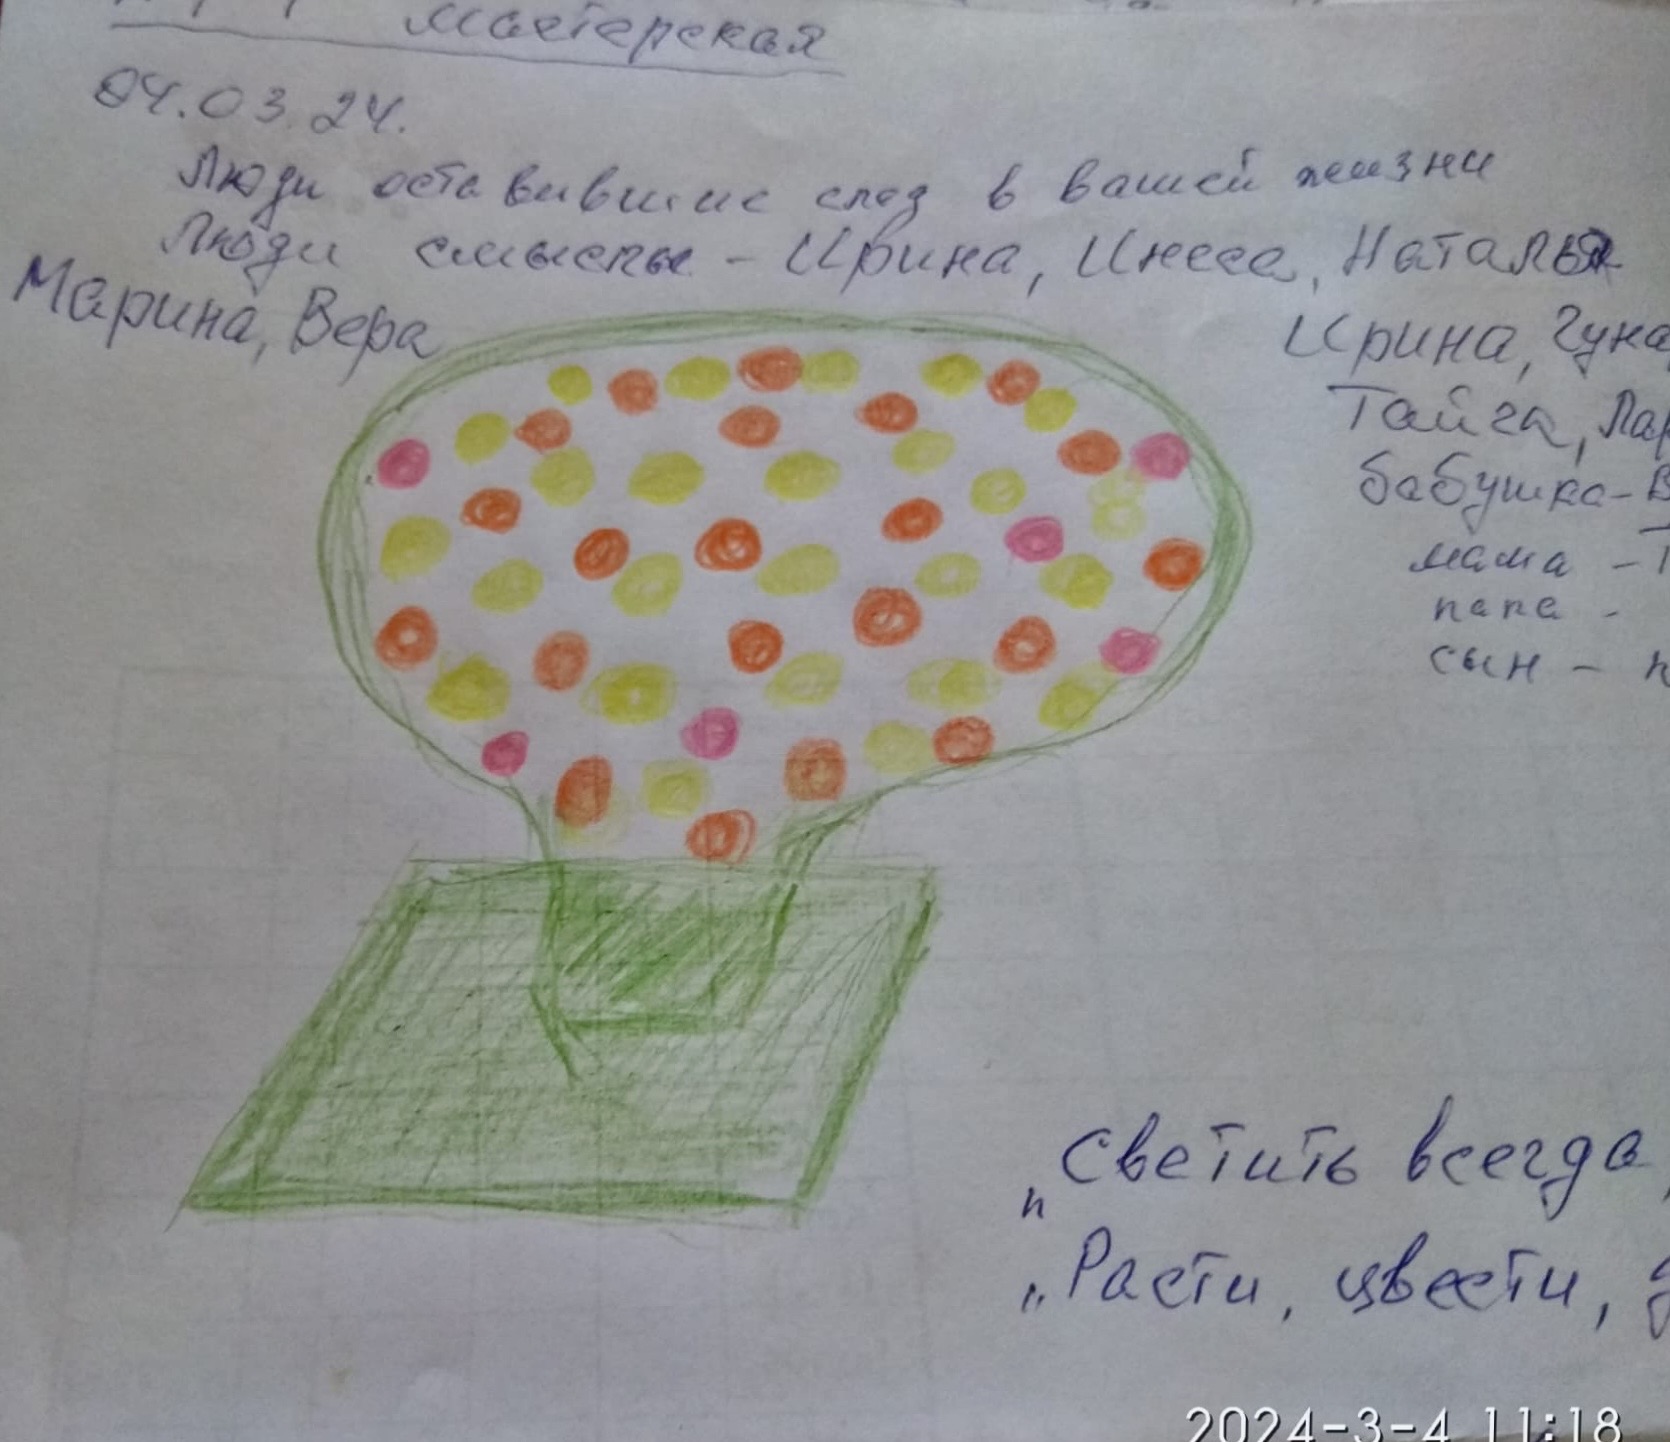 мастерская
04.03.24.
Люди оставившие след в вашей жизни
Люди смыслы - Ирина, Инесса, Наталья
Марина, Вера
Ирина, Гуна
Тайга, Лар
бабушка - В
мама - Т
папа -
сын - п
„Светить всегда,
„Расти, цвести,
2024-3-4 11:18